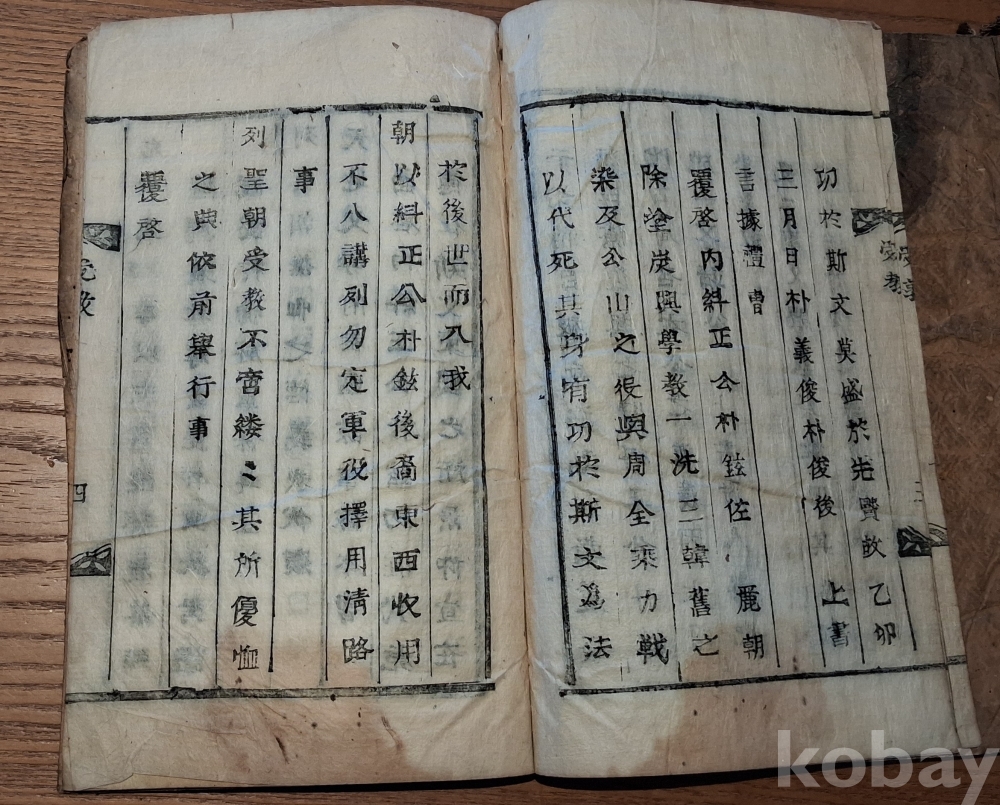 功於斯文莫盛於先賢故乙卯
三月日朴義俊朴俊後 上書
書據禮曹
覆啓內糾正公朴鉉佐 麗朝
除塗炭興學教一洗三韓舊之
染及公山之役與周全來力戰
以代死其身有功於斯文爲法
於後世而入我
朝以糾正公朴鉉後裔東西收用
不入講列勿定軍役擇用清路
事
列聖朝受教不啻縷〻其所優恤
之典依前擧行事
覆啓
受教
三
受教
四
kobay